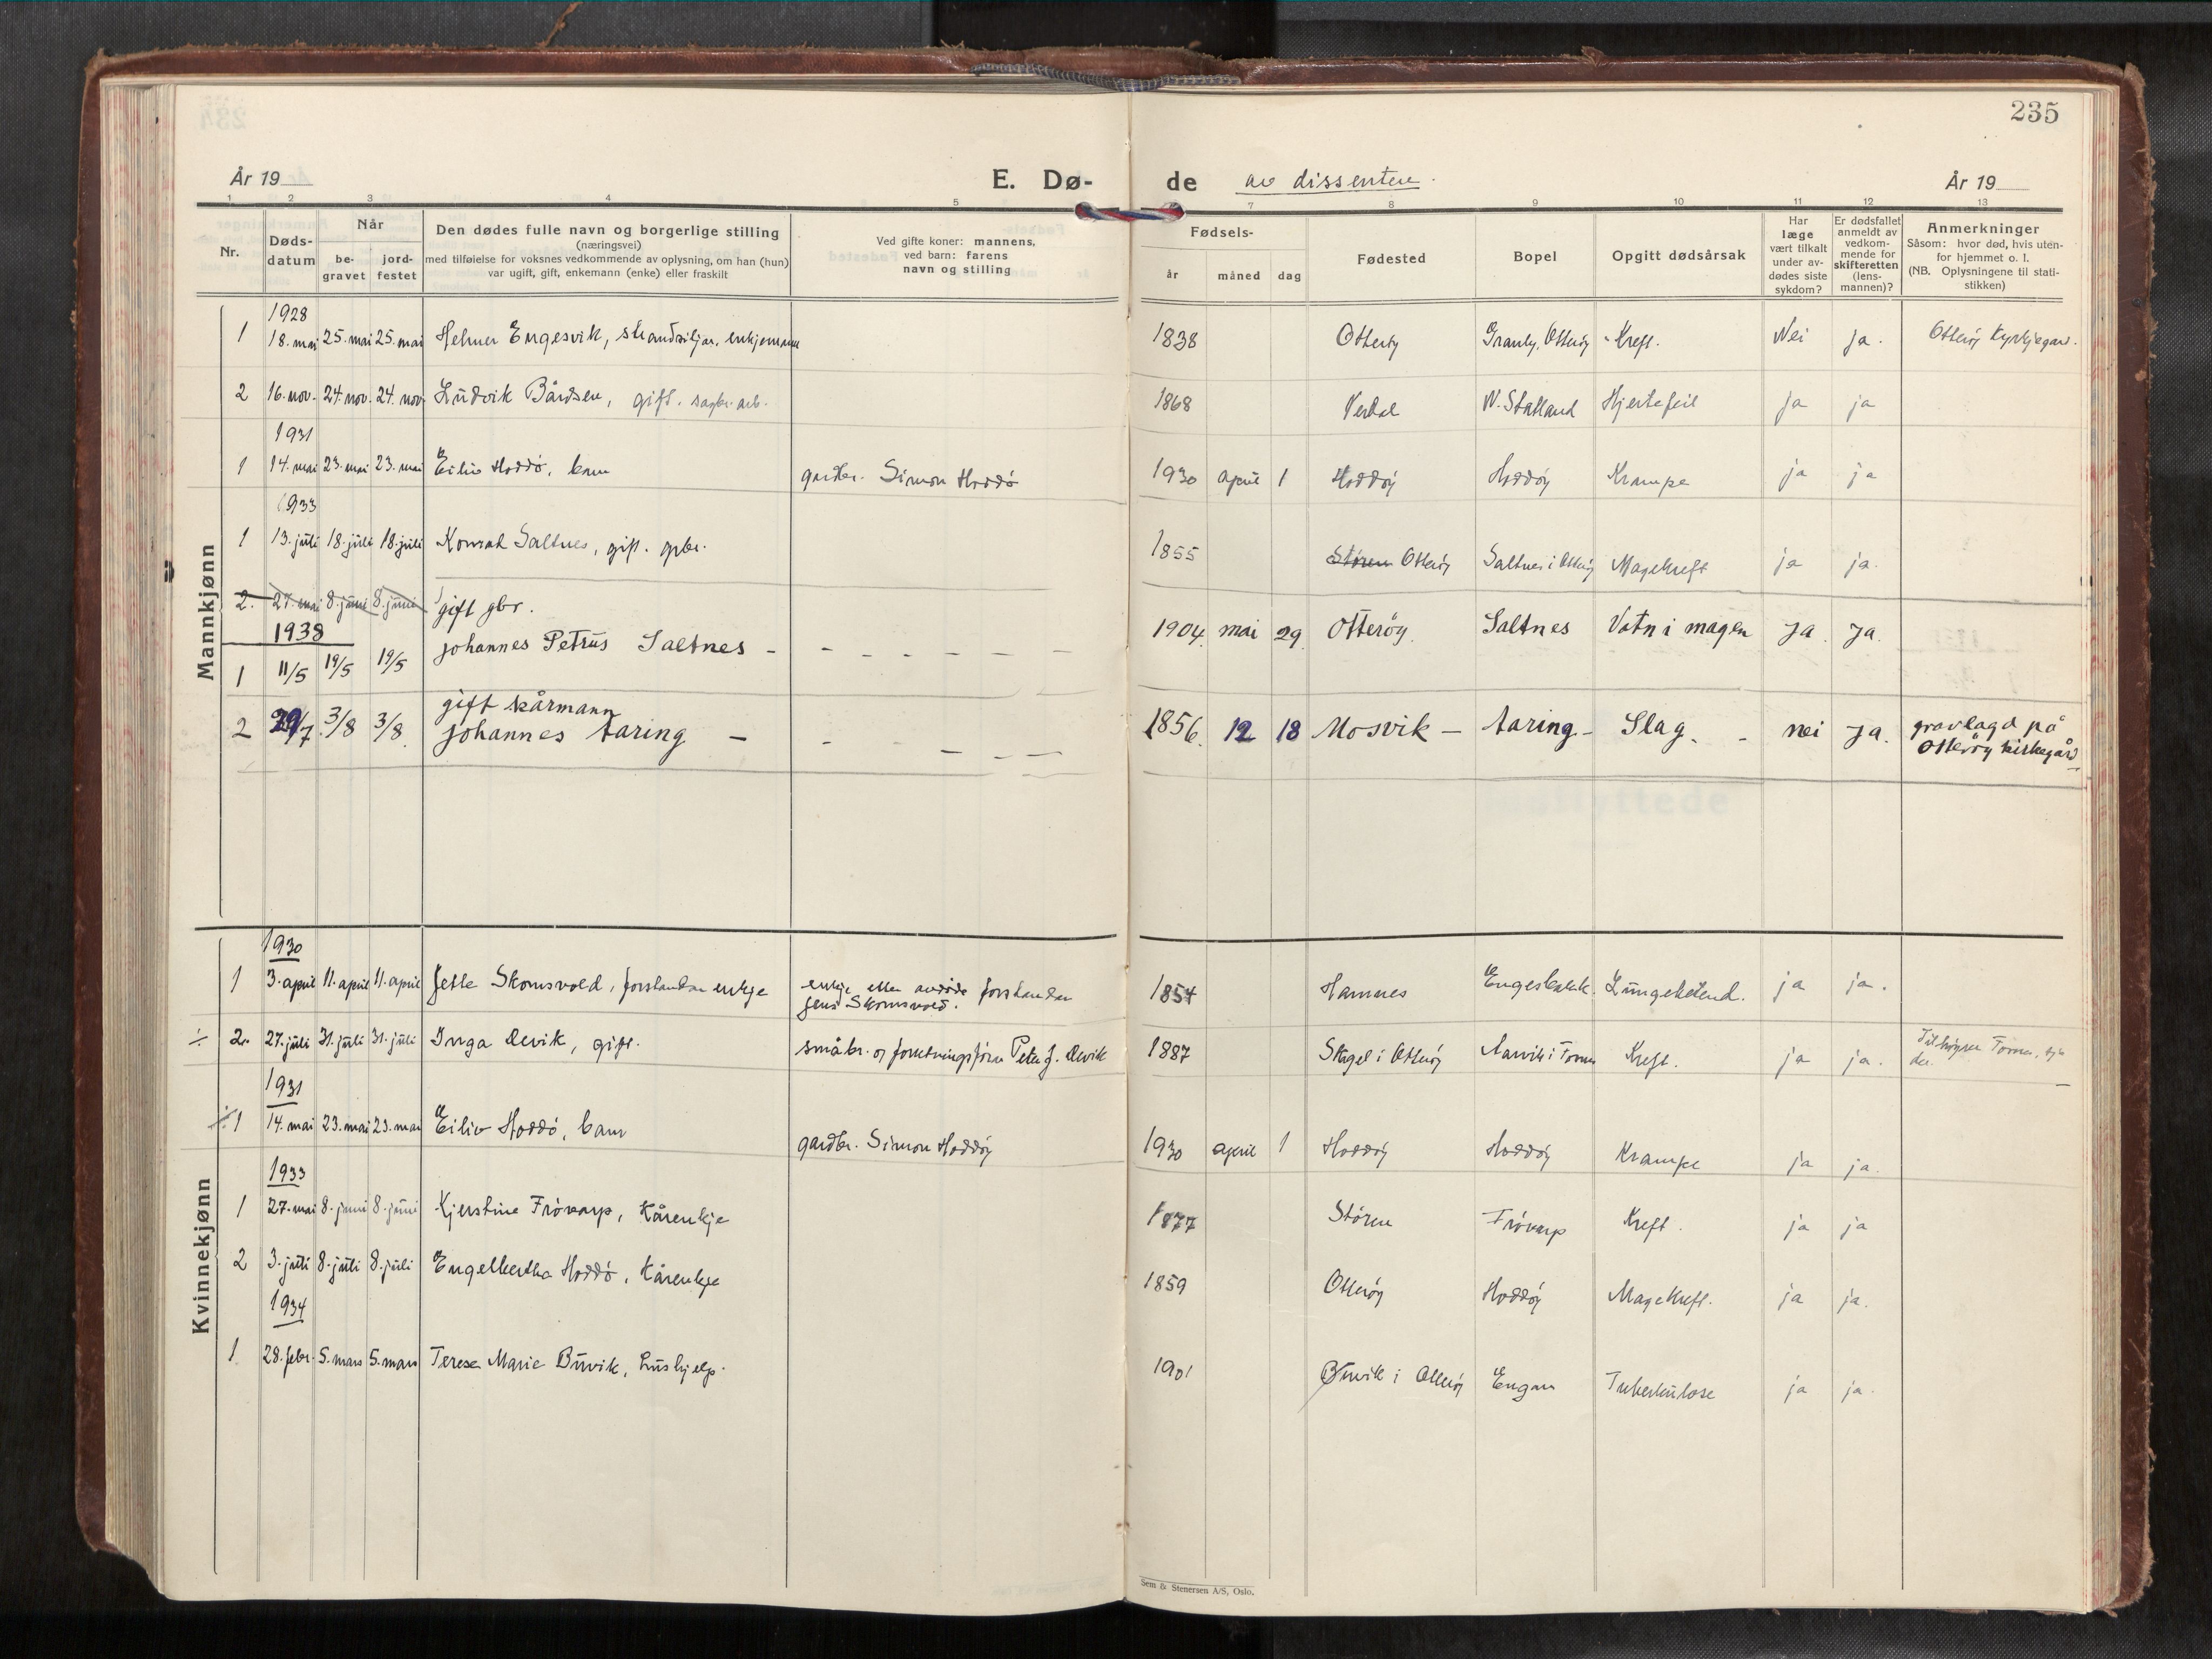 235
År 19
E. Dø-
de av dissentere.
År 19
1 2 3 4 5 7 8 9 10 11 12 13
Nr.
Døds-
datum
Når
be-
gravet
jord-
festet
Den dødes fulle navn og borgerlige stilling
(næringsvei)
med tilføielse for voksnes vedkommende av oplysning, om han (hun)
var ugift, gift, enkemann (enke) eller fraskilt
Ved gifte koner: mannens,
ved barn: farens
navn og stilling
Fødsels-
år måned dag
Fødested
Bopel
Opgitt dødsårsak
Har
læge
vært tilkalt
under av-
dødes siste
sykdom?
Er dødsfallet
anmeldt av
vedkom-
mende for
skifteretten
(lens-
mannen)?
Anmerkninger
Såsom: hvor død, hvis uten-
for hjemmet o. l.
(NB. Oplysningene til stati-
stikken)
Mannkjønn
1928
1 18. mai 25. mai 25. mai Helmer Engesvik, strandsitjar, enkjemann 1838 Otterøy Granly, Otterøy Kreft. Nei ja. Otterøy kyrkjegard.
2 16. nov. 24. nov. 24. nov. Ludvik Bårdsen, gift. sagbr. arb. 1868 Verdal N. Statland Hjertefeil ja ja
1931
1 14. mai 23. mai 23. mai Eiliv Hoddö, barn gardbr. Simon Hoddö 1930 april 1 Hoddöy Hoddöy Krampe ja ja
1933
1 13. juli 18. juli 18. juli Konrad Saltnes, gift. gbr. 1855 Stören Otteröy Saltnes i Otteröy Magekreft ja ja.
2. 27. mai 8. juni 8. juni
gift gbr.
1938
1 11/5 19/5 19/5 Johannes Petrus Saltnes - 1904. mai 29. Otterøy. Saltnes Vatn i magen Ja. Ja.
gift kårmann
2 29/7 3/8 3/8. Johannes Aaring - 1856. 12 18 Mosvik - Aaring - Slag. - nei Ja. gravlagd på
Otterøy kirkegård
Kvinnekjønn
1930
1 3. april 11. april 11. april Jette Skomsvold, forstander enkje enkje etter avdöde forstander
Jens Skomsvold. 1854 Hamnes Engesbakk Lungebetend. ja ja.
÷ 2. 27. juli 31. juli 31. juli Inga Devik, gift. småbr. og forretningsförer Peter J. Devik 1887 Skagel i Otteröy Aarvik i Fosnes Kreft. ja ja.
1931
÷ 1 14. mai 23. mai 23. mai Eiliv Hoddö, barn gardbr. Simon Hoddöy 1930 april 1 Hoddöy Hoddöy Krampe ja ja.
1933
1 27. mai 8. juni 8. juni Kjerstine Frövarp, Kårenkje 1877 Stören Frövarp Kreft. ja ja
2 3. juli 8. juli 8. juli Engelbertha Hoddö, Kårenkje 1859 Otteröy Hoddöy Magekreft. ja ja.
1934
1 28. febr. 5. mars 5. mars Terese Marie Buvik, hushjelp. 1901 Buvik i Otteröy Engan Tuberkulose ja ja.
Sem & Stenersen A/S, Oslo.